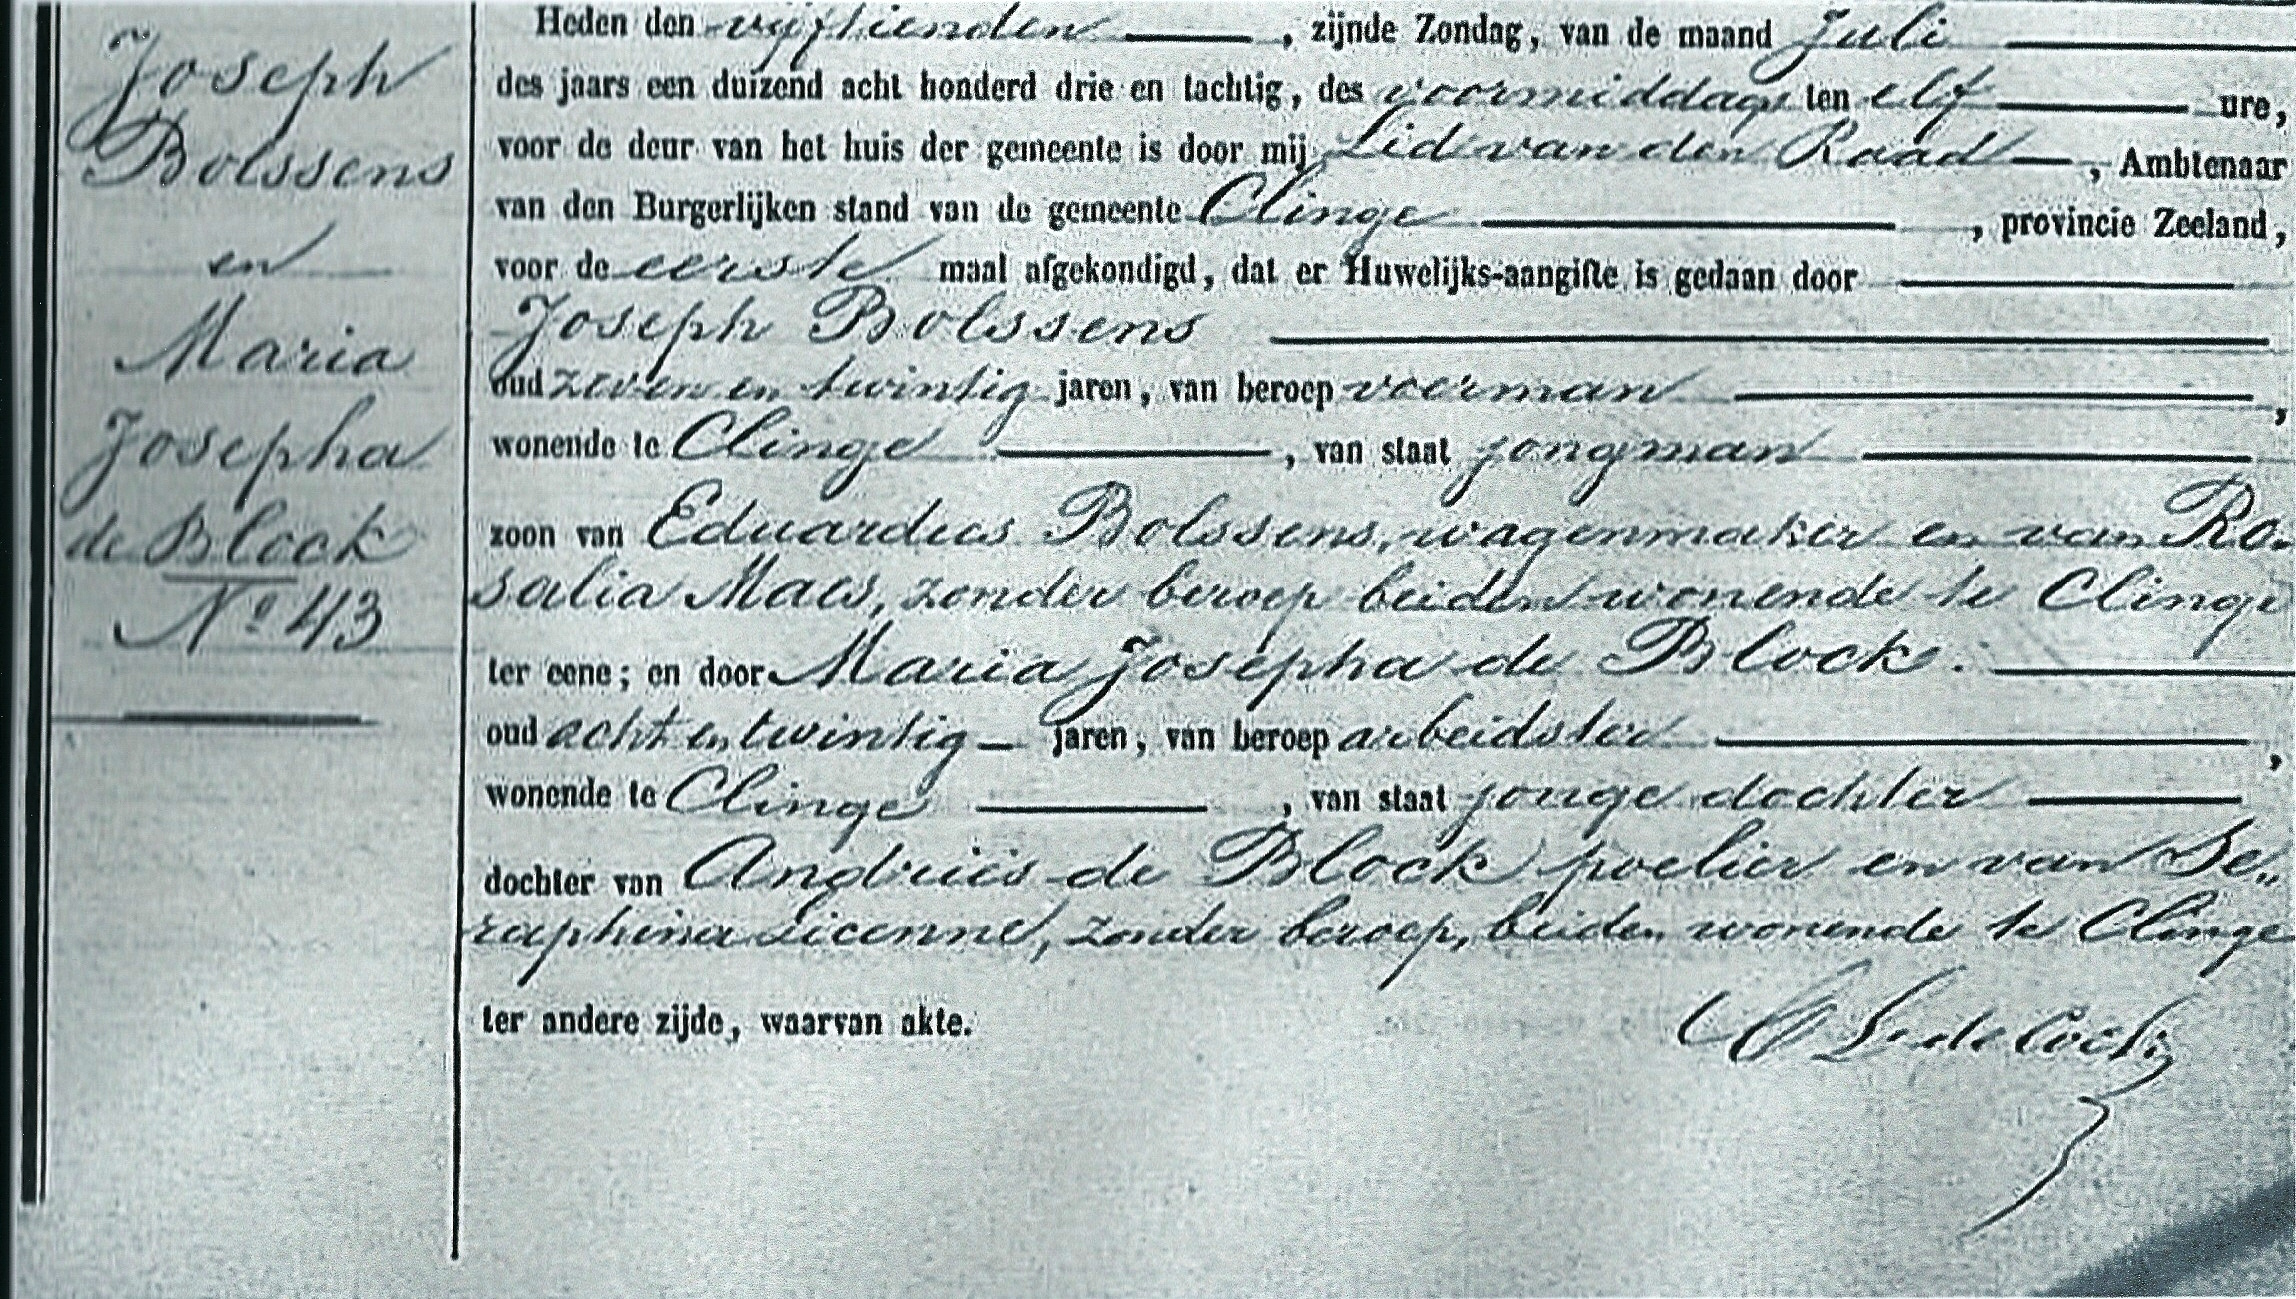 Joseph
Bolssens
en
Maria
Josepha
de Block
No 43
Heden den vijftienden, zijnde Zondag, van de maand Juli
des jaars een duizend acht honderd drie en tachtig, des voormiddags ten elf ure,
voor de deur van het huis der gemeente is door mij Lid van den Raad, Ambtenaar
van den Burgerlijken stand van de gemeente Clinge, provincie Zeeland,
voor de eerste maal afgekondigd, dat er Huwelijks-aangifte is gedaan door
Joseph Bolssens
oud zeven en twintig jaren, van beroep voerman,
wonende te Clinge, van staat jongman
zoon van Eduardus Bolssens, wagenmaker en van Ro-
salia Maes, zonder beroep beiden wonende te Clinge
ter eene; en door Maria Josepha de Block.
oud acht en twintig jaren, van beroep arbeidster,
wonende te Clinge, van staat jonge dochter
dochter van Angluiis de Block poelier en van Se„
raphina Licenne, zonder beroep, beiden wonende te Clinge
ter andere zijde, waarvan akte.
de Cock